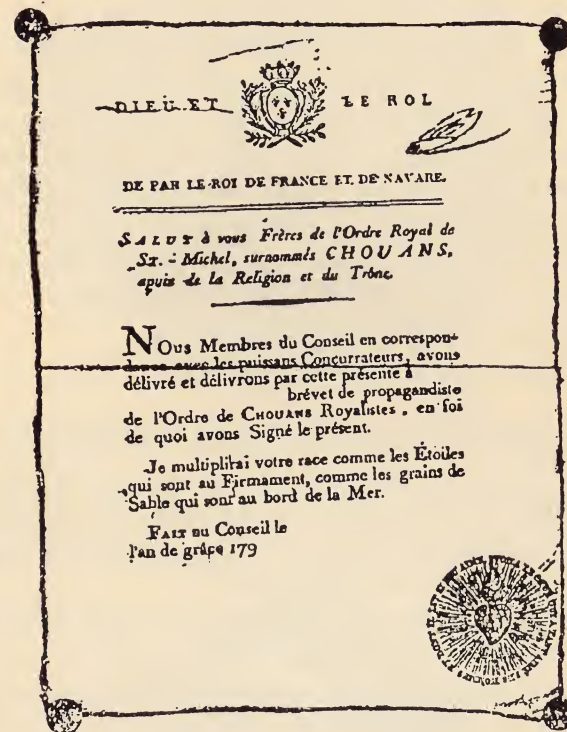 DIEU ET LE ROI
DE PAR LE ROI DE FRANCE ET DE NAVARE.
SALUT à vous Frères de l'Ordre Royal de
ST. - Michel, surnommés CHOUANS,
apuis de la Religion et du Trône.
NOUS Membres du Conseil en correspon-
dance avec les puissans Concurrateurs, avons
délivré et délivrons par cette présente à
brévet de propagandiste
de l'Ordre de CHOUANS Royalistes, en foi
de quoi avons Signé le présent.
Je multiplirai votre race comme les Étoiles
qui sont au Firmament, comme les grains de
Sable qui sont au bord de la Mer.
FAIT au Conseil le
l'an de grâce 179